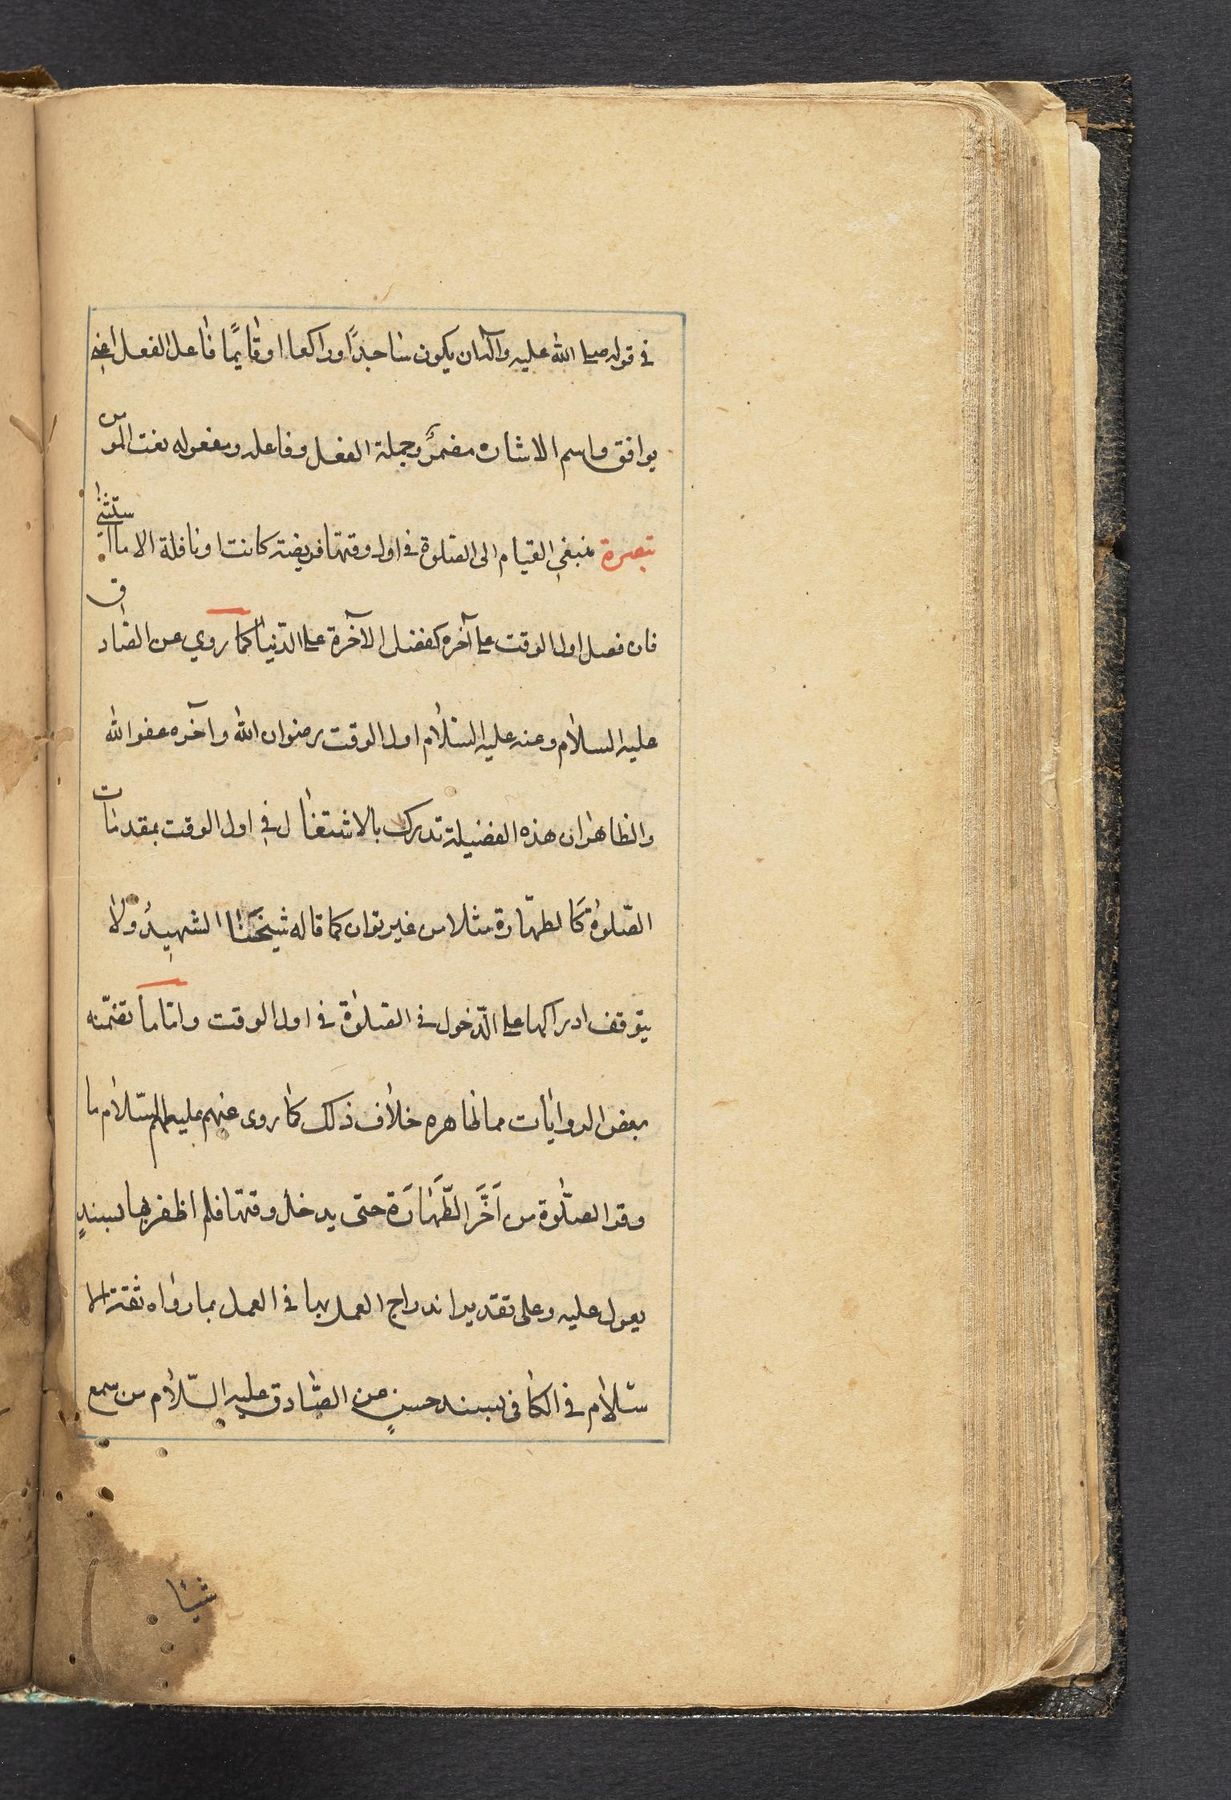 في قوله صلى الله عليه وآله ان يكون ساجدًا او راكعا او قايمًا فاعل الفعل اعني
يوافق واسم الاشاره مضمرٌ وجملة الفعل وفاعله ومفعوله نعت المومن
تبصرة ينبغي القيام الى الصّلوة في اول وقتها فريضة كانت او نافلة الا ما استثني
فان فضل اول الوقت على آخره كفضل الآخرة على الدّنيا كما روي عن الصّادق
عليه السلام وعنه عليه السّلام اول الوقت رضوان الله وآخره عفو الله
والظاهر ان هذه الفضيلة تدرك بالاشتغال في اول الوقت بمقدمات
الصّلوة كَالطهّارة مثلا من غير توان كما قاله شيخَنَا الشهيدُ ولا
يتوقف ادراكها على الّدخول في الصّلوة في اول الوقت وامّا ما تضمّنه
بعض الروايات مما ظاهره خلاف ذلك كما روى عنهم عليهم السّلام ما
وقر الصّلوة من اَخَّرَ الطَّهَارَة حتى يدخل وقتها فلم اظفر بها بسندٍ
يعول عليه وعلى تقدير اندراج العمل بها في العمل بما رواه ثقة الا
سّلام في الكافي بسند حسنٍ عن الصّادق عليه السّلام من سمع
شيئا